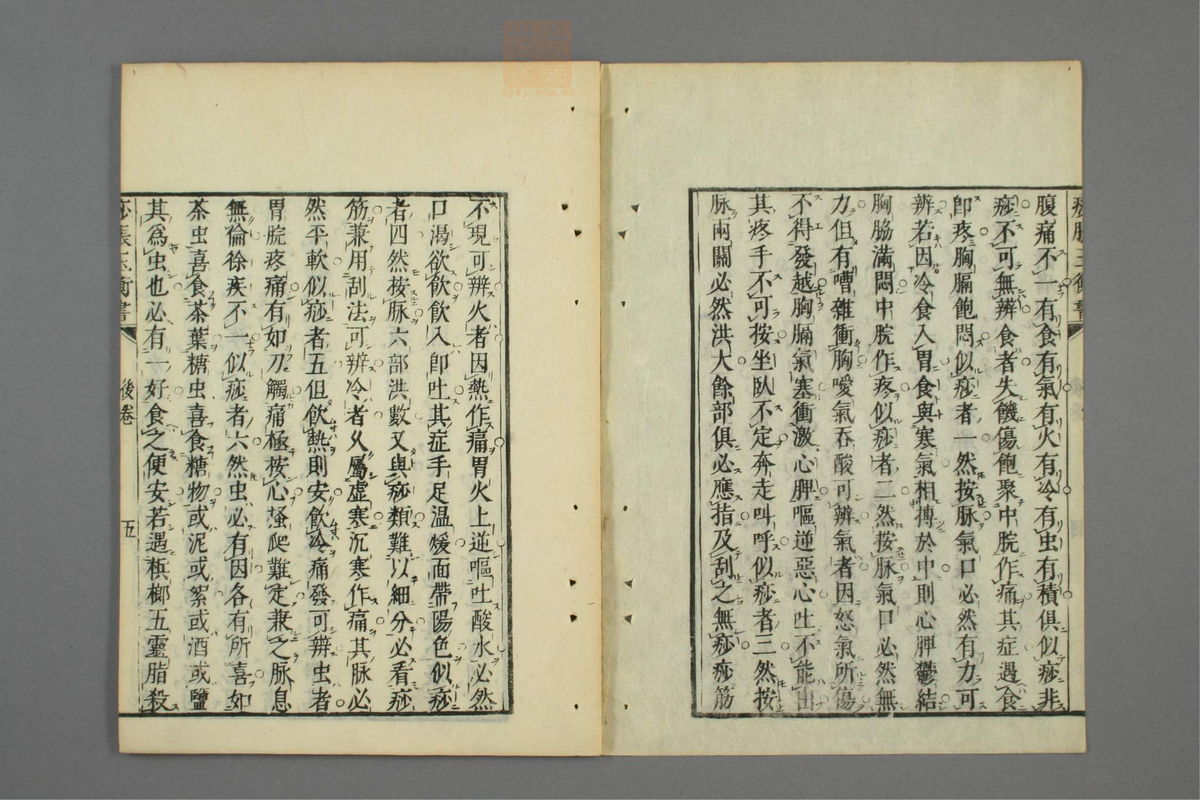 腹痛不一有食有氣有火有冷有虫有積俱似痧非
痧不可無辨食者失饑傷飽聚中脘作痛其症遇食
卽疼胸膈飽悶似痧者一然按脉氣口必然有力可
辨若因冷食入胃食與寒氣相搏於中則心脾鬱結
胸脇満悶中脘作疼似痧者二然按脉氣口必然無
力但有嘈雜衝胸噯氣吞酸可辨氣者因怒氣所傷
不得發越胸膈氣塞衝激心脾嘔逆惡心吐不能出
其疼手不可按坐臥不定奔走叫呼似痧者三然按
脉兩關必然洪大餘部俱必應指及刮之無痧痧筋
不現可辨火者因熱作痛胃火上逆嘔吐酸水必然
口渴欲飲飲入卽吐其症手足温煖面帶陽色似痧
者四然按脉六部洪數又與痧類難以細分必看痧
筋兼用刮法可辨冷者乆屬虛寒沉寒作痛其脉必
然平軟似痧者五但飲熱則安飲冷痛發可辨虫者
胃脘疼痛有如刀觸痛極按心搔爬難定兼之脉息
無倫徐疾不一似痧者六然虫必有因各有所喜如
茶虫喜食茶葉糖虫喜食糖物或泥或絮或酒或鹽
其爲虫也必有一好食之便安若遇梹榔五靈脂殺
痧脹玉衡書
後卷
五
zyyj.com.cn